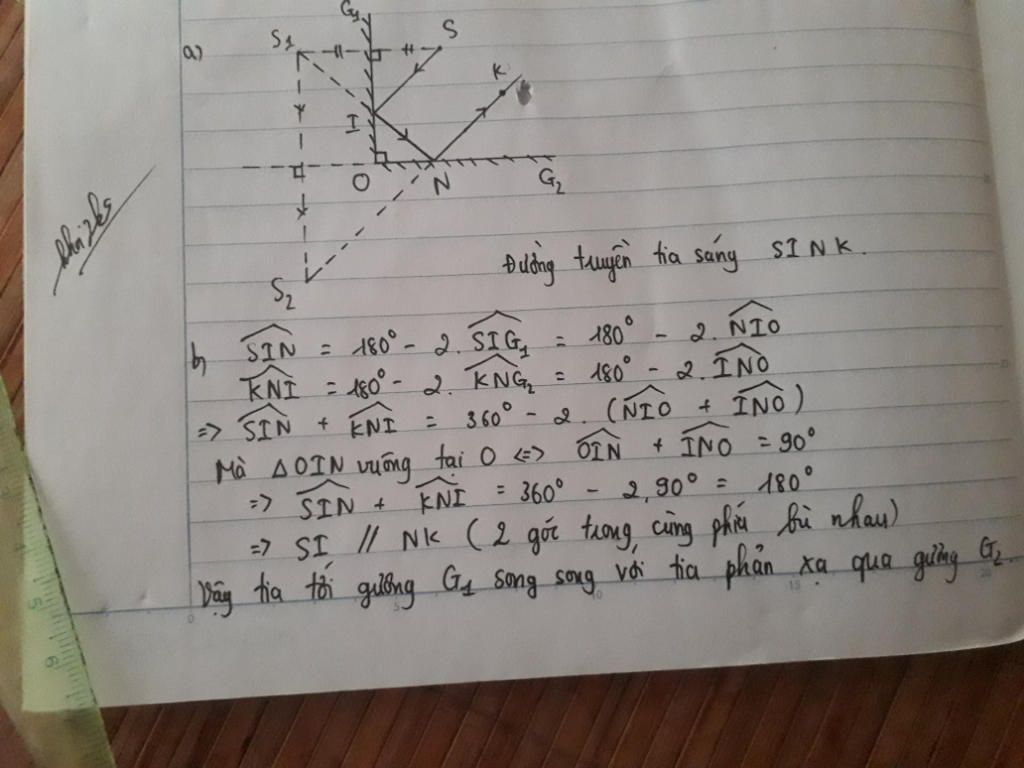 a)
G1
S1
S
K
I
O
N
G2
S2
Đường truyền tia sáng SINK.
b, SIN = 180° - 2. SIG1 = 180° - 2. NIO
KNI = 180° - 2. KNG2 = 180° - 2. INO
=> SIN + KNI = 360° - 2. (NIO + INO)
Mà Δ OIN vuông tại O <=> OIN + INO = 90°
=> SIN + KNI = 360° - 2.90° = 180°
=> SI // NK (2 góc trong cùng phía bù nhau)
Vậy tia tới gương G1 song song với tia phản xạ qua gương G2.
0 5 10 15 20
5
6